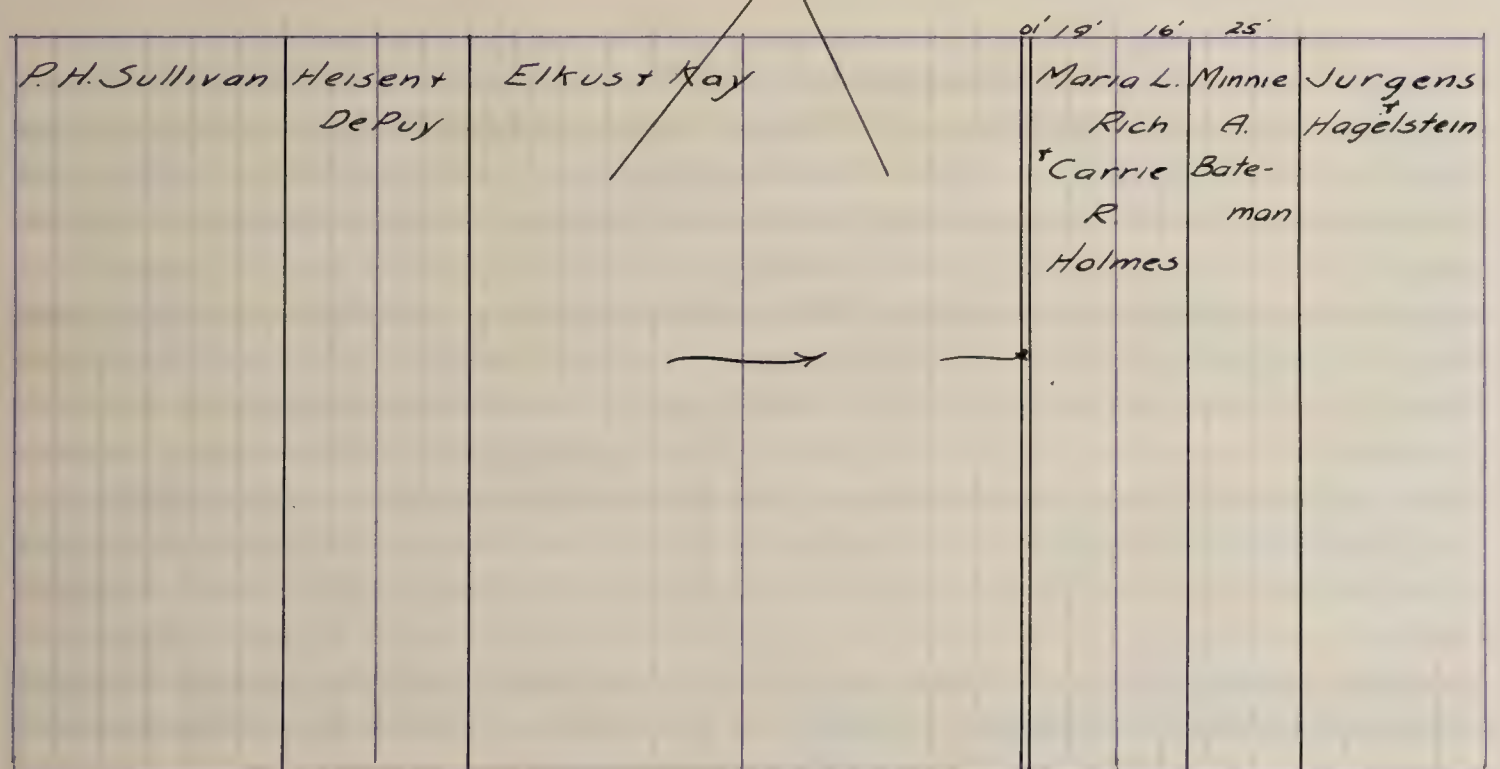 01' 19' 16' 25'
P.H. Sullivan
Heisen +
DePuy
Elkus + Kay
Maria L.
Rich
+ Carrie
R.
Holmes
Minnie
A.
Bate-
man
Jurgens
+
Hagelstein